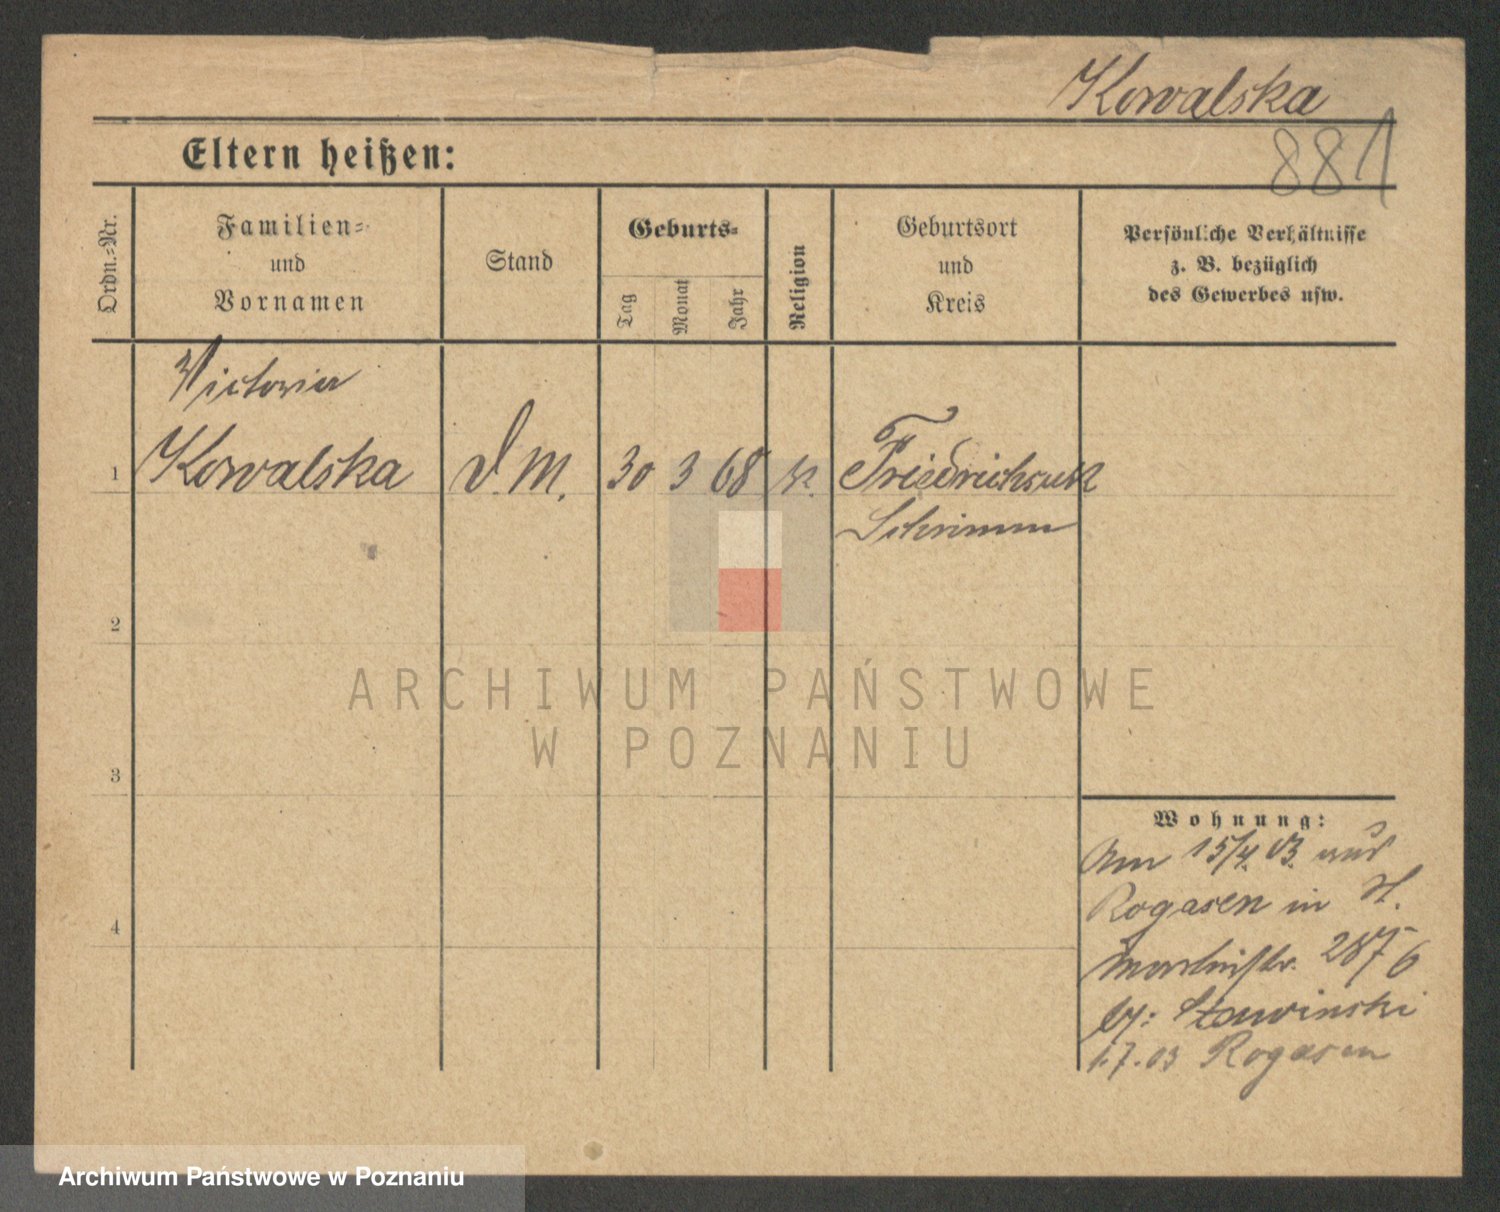 Kowalska
881
Eltern heißen:
Ordn.=Nr.
Familien=
und
Vornamen
Stand
Geburts=
Tag
Monat
Jahr
Religion
Geburtsort
und
Kreis
Persönliche Verhältnisse
z. B. bezüglich
des Gewerbes usw.
Victoria
1 Kowalska D. M. 30 3 68 k. Friedrichseck
Schrimm
2
3
4
Wohnung:
Am 15/4. 03. aus
Rogasen in H.
Martinstr. 28
by: Stawinski
1.7.03 Rogasen
ARCHIWUM PAŃSTWOWE
W POZNANIU
Archiwum Państwowe w Poznaniu